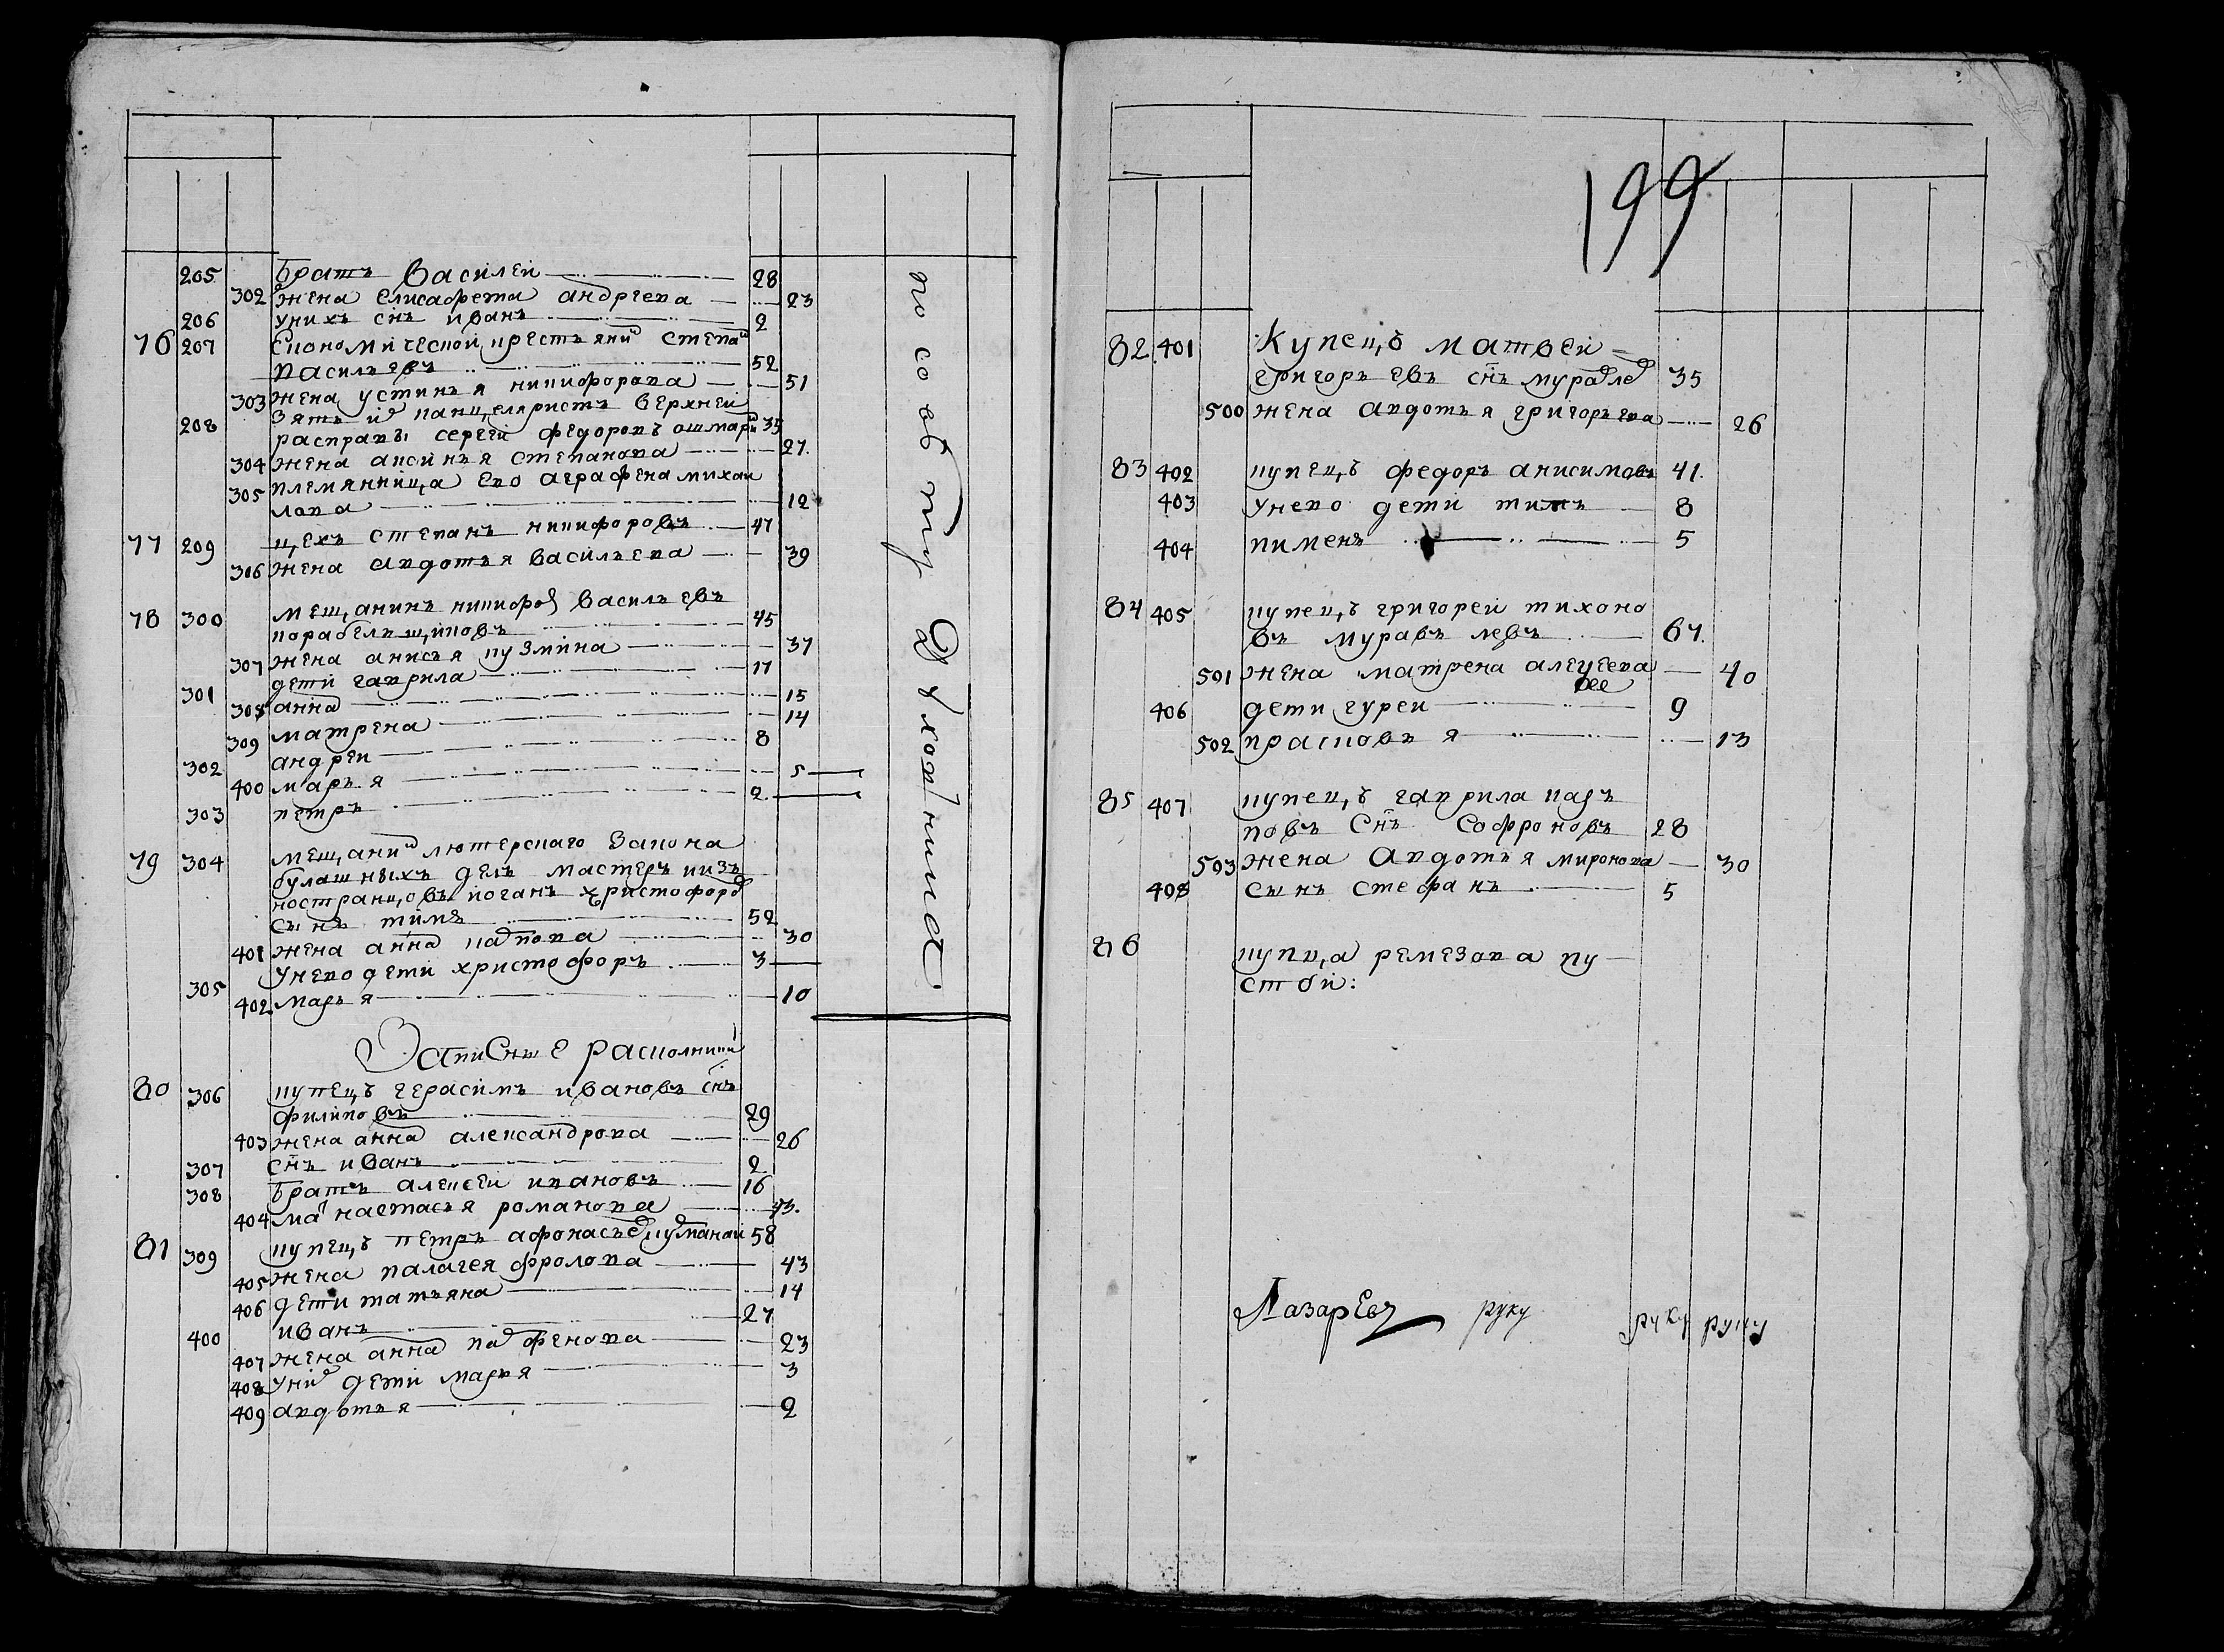 205 братъ Василей 28
302 жена елисафета андреева 23
206 у нихъ снъ иванъ 2
76 207 Економической крестьяни степа
васильевъ 52
303 жена устинья никифорова 51
208 зять и канцеляристъ верхней
расправы сергей федоровъ ошмари 35
304 жена аксинья степанова 27.
305 племянница ево аграфена михаи
лова 12
77 209 цехъ степанъ никифоровъ 47
306 жена авдотья васильева 39
78 300 мещанинъ никифор Васильевъ
корабельщиковъ 45
307 жена анисья кузмина 37
301 дети гаврила 17
308 анна 15
309 матрена 14
302 андреи 8
400 марья 5
303 петръ 2
79 304 мещани лютерскаго закона
булашныхъ делъ мастеръ изъ
ностранцовъ иоганъ христофоро
сынъ тимъ 52
401 жена анна 30
305 у нево дети христофоръ 3
402 марья 10
по советнику Духовника
Записные раскольники
80 306 купецъ герасимъ ивановъ снъ
филиповъ 29
403 жена анна александрова 26
307 снъ иванъ 2
308 братъ алексеи ивановъ 16
404 ма настасья романова 43.
81 309 купецъ петръ афонасье 58
405 жена палагея фролова 43
406 дети татьяна 14
400 иванъ 27
407 жена анна пафенова 23
408 у ни дети марья 3
409 авдотья 2
199
82 401 Купецъ матвей
григорьевъ снъ муравле 35
500 жена авдотья григорьева 26
83 402 купецъ федоръ анисимовъ 41.
403 у нево дети титъ 8
404 пименъ 5
84 405 купецъ григорей тихоно
въ муравьлевъ 67.
501 жена матрена алексеева 40
406 дети гуреи 9
502 прасковья 13
85 407 купецъ гаврила кар
повъ снъ Софроновъ 28
503 жена Авдотья миронова 30
408 сынъ стефанъ 5
86 купца ремезова пу
стой:
Лазаревъ руку руку руку